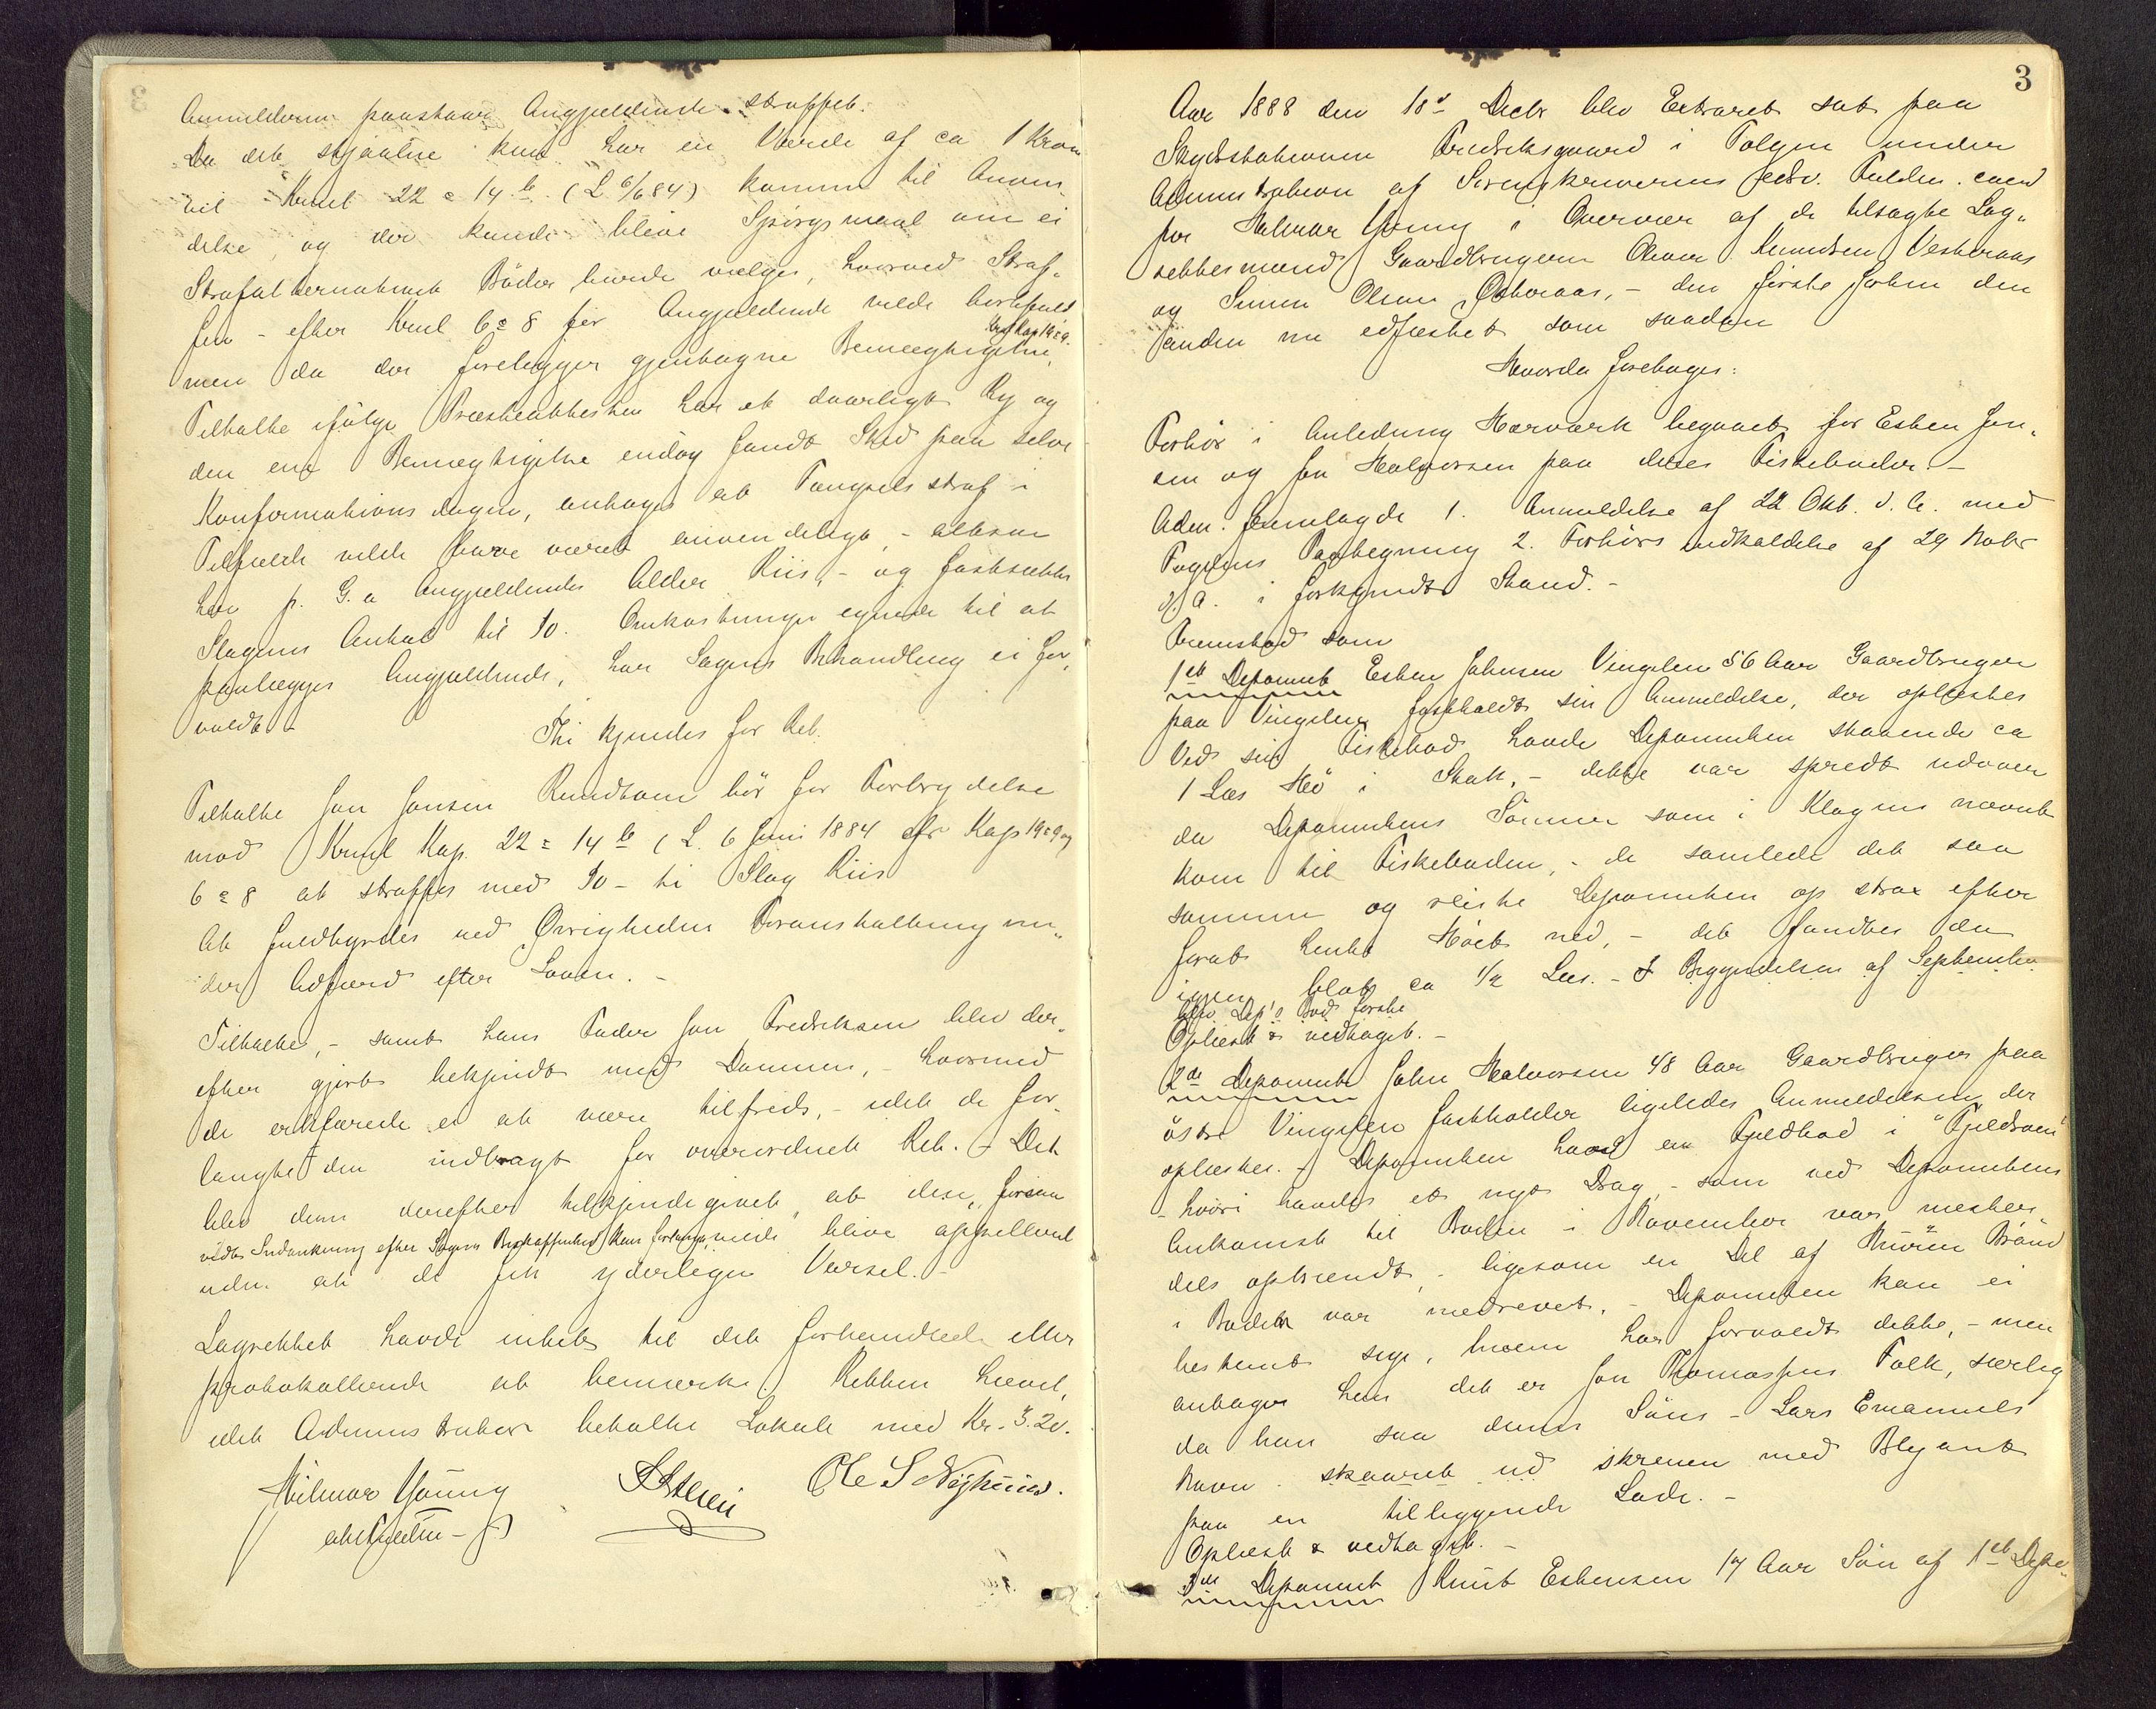 Anmelderen paastaar Angjældende straffet.
Da det stjaalne kun har en Værdi af ca 1 Krone
vil Kriml 22 = 14 b. (L 6/6 84) komme til Anven-
delse, og der kunde blive Spörgsmaal om ei
Strafalternativet Böder burde vælges, hvorved Straf-
fen - efter Kruml 6 = 8 for Angjældende vilde bortfald
men da der foreligger gjentagne Bemægtigelser, krf Kap 19 = 9.
Tiltalte ifölge Præsteattesten har et daarligt Ry og
den ene Bemægtigelse endog fandt Sted paa selve
Konfirmationsdagen, antages at Fængselsstraf i
Tilfælde vilde have været anvendeligt, - altsaa
her p. G. a Angjældendes Alder Riis, - og fastsættes
Slagenes Antal til 10. Omkostninger egnede til at
paalægges Angjældende, har Sagens Behandling ei for-
voldt. -
Thi kjendes for Ret.
Tiltalte Jon Jonsen Rundtom bör for Forbrydelse
mod Kriml Kap. 22 = 14 b (L. 6 Juni 1884 cfr Kap 19 = 9 og
6 = 8 at straffes med 10 - ti Slag Riis
At fuldbyrdes ved Övrighedens Foranstaltning un-
der Adfærd efter Loven. -
Tiltalte, - samt hans Fader Jon Fredriksen blev der-
efter gjort bekjendt med Dommen, - hvormed
de erklærede ei at være tilfreds, - idet de for-
langte den indbragt for overordnet Ret. - Det
blev dem derefter tilkjendegivet, at den, forsaa-
vidt Indankning efter Sagens Beskaffenhed kan forlanges, vilde blive appelleret
uden at de fik yderligere Varsel. -
Lagrettet havde intet til det forhandlede eller
protokollerede at bemærke. Retten hævet,
idet Administrator betalte Lokale med Kr. 3.20.
Hilmar Young
S Steen
Ole S Nÿhuus.
3
Aar 1888 den 18de Decbr blev Extraret sat paa
Skydsstationen Fredriksgaard i Tolgen under
Administration af Sorenskriverens edsv. Fuldm. cand
jur Hilmar Young i Overvær af de tilsagte Lag-
rettesmænd Gaardbrugerne Oluver Knudsen Vesteraas
og Simen Olsen Østeraas, - den förste förhen den
anden nu edfæstet som saadan
Hvorda foretages:
Forhör i Anledning Hærværk begaaet for Esten Jon-
sen og Jon Halvorsen paa deres Fiskeboder. -
Adm. fremlagde 1. Anmeldelse af 22 Okt. d. A. med
Fogdens Paategning 2. Forhörs indkaldelse af 29 Novbr
d. A. i forkyndt Stand. -
Fremstod som
1ste Deponent Esten Johnsen Vingelen 56 Aar Gaardbruger
paa Vingelen fastholdt sin Anmeldelse, der oplæstes
Ved sin Fiskebod havde Deponenten staaende ca
1 Læs Hö i Stak, - dette var spredt udover
da Deponentens Sönner som i Klagen nævnt
kom til Fiskeboden, - de samlede det saa
sammen og reiste Deponenten op strax efter
forat hente Höet ned, - det fandtes da
igjen blot ca 1/2 Læs. - I Begyndelsen af September
blev Dep's Bod forste
Oplæst & vedtaget. -
2de Deponent John Halvorsen 48 Aar Gaardbruger paa
östre Vingelen fastholder ligeledes Anmeldelsen der
oplæstes. - Deponenten havd en Fjeldbod i "Fjeldroen"
- hvori havdes et nyt Drag, - som ved Deponentens
Ankomst til Boden i November var mestens-
dels opbrændt, - ligesom en Del af Muren
i Boden var nedrevet. - Deponenten kan ei
bestemt sige, hvem har forvoldt dette, - men
antager han det er Jon Thomassens Folk, særlig
da han saa dennes Söns - Lars Emanuels
Navn skaaret ud skreven med Blyant
paa en tilliggende Lade. -
Oplæst & vedtaget. -
3die Deponent Knut Estensen 17 Aar Sön af 1ste Depo-